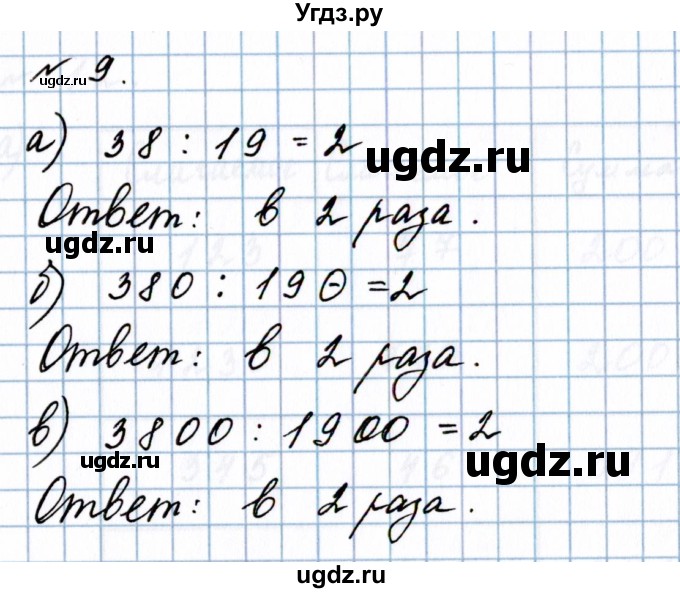 Угдз.ру
№ 9.
ugdz.ru
а) 38 : 19 = 2
ugdz.ru
Ответ: в 2 раза.
ugdz.ru
б) 380 : 190 = 2
Ответ: в 2 раза.
в) 3800 : 1900 = 2
ugdz.ru
ugdz.ru
Ответ: в 2 раза.
ugdz.ru